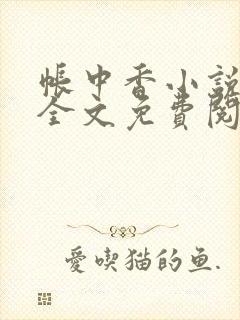 帳中香小說
全文免費閱
愛喫猫的鱼.